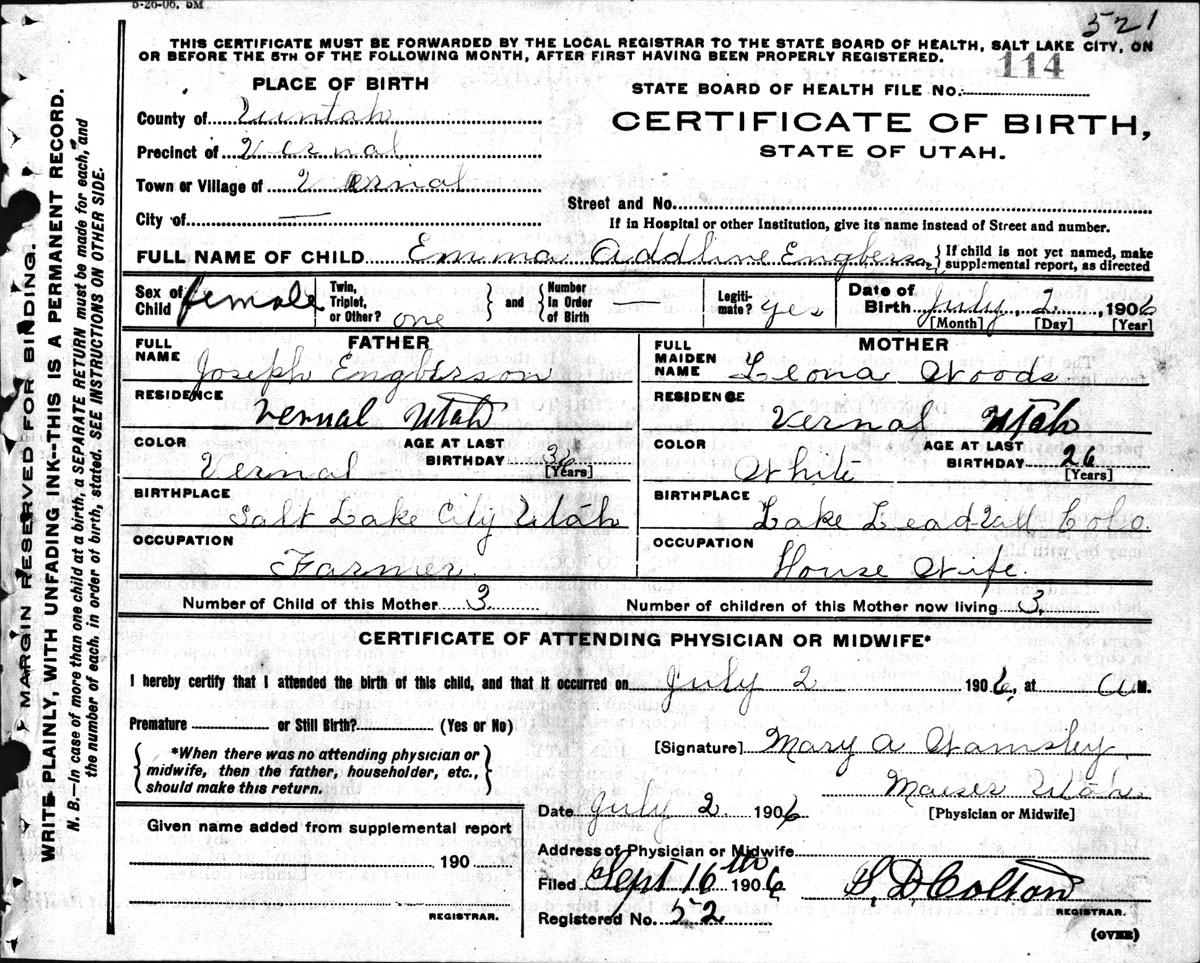 5-26-06. 5M
521
THIS CERTIFICATE MUST BE FORWARDED BY THE LOCAL REGISTRAR TO THE STATE BOARD OF HEALTH, SALT LAKE CITY, ON
OR BEFORE THE 5TH OF THE FOLLOWING MONTH, AFTER FIRST HAVING BEEN PROPERLY REGISTERED.
114
PLACE OF BIRTH
STATE BOARD OF HEALTH FILE No.
County of Uintah
CERTIFICATE OF BIRTH,
Precinct of Vernal
STATE OF UTAH.
Town or Village of Vernal
Street and No.
City of —
If in Hospital or other Institution, give its name instead of Street and number.
FULL NAME OF CHILD Emma Addline Engberson {If child is not yet named, make supplemental report, as directed
Sex of Child female
Twin, Triplet, or Other? one } and { Number In Order of Birth —
Legitimate? yes
Date of Birth July, 2, 1906
[Month] [Day] [Year]
FATHER
FULL NAME Joseph Engberson
RESIDENCE Vernal Utah
COLOR Vernal AGE AT LAST BIRTHDAY 36 [Years]
BIRTHPLACE Salt Lake City Utah
OCCUPATION Farmer.
MOTHER
FULL MAIDEN NAME Leona Woods
RESIDENCE Vernal Utah
COLOR White AGE AT LAST BIRTHDAY 26 [Years]
BIRTHPLACE Lake Colo.
OCCUPATION House Wife.
Number of Child of this Mother 3
Number of children of this Mother now living 3.
CERTIFICATE OF ATTENDING PHYSICIAN OR MIDWIFE*
I hereby certify that I attended the birth of this child, and that it occurred on July 2 1906, at a M.
Premature or Still Birth? (Yes or No)
{*When there was no attending physician or midwife, then the father, householder, etc., should make this return.}
[Signature] Mary A Wamsley
Maeser Utah.
[Physician or Midwife]
Date July 2 1906
Given name added from supplemental report
190
REGISTRAR.
Address of Physician or Midwife
Filed Sept 16th 1906
S. D. Colton
REGISTRAR.
Registered No. 52
(OVER)
MARGIN RESERVED FOR BINDING.
WRITE PLAINLY, WITH UNFADING INK--THIS IS A PERMANENT RECORD.
N. B.—In case of more than one child at a birth, a SEPARATE RETURN must be made for each, and
the number of each, in order of birth, stated. SEE INSTRUCTIONS ON OTHER SIDE.